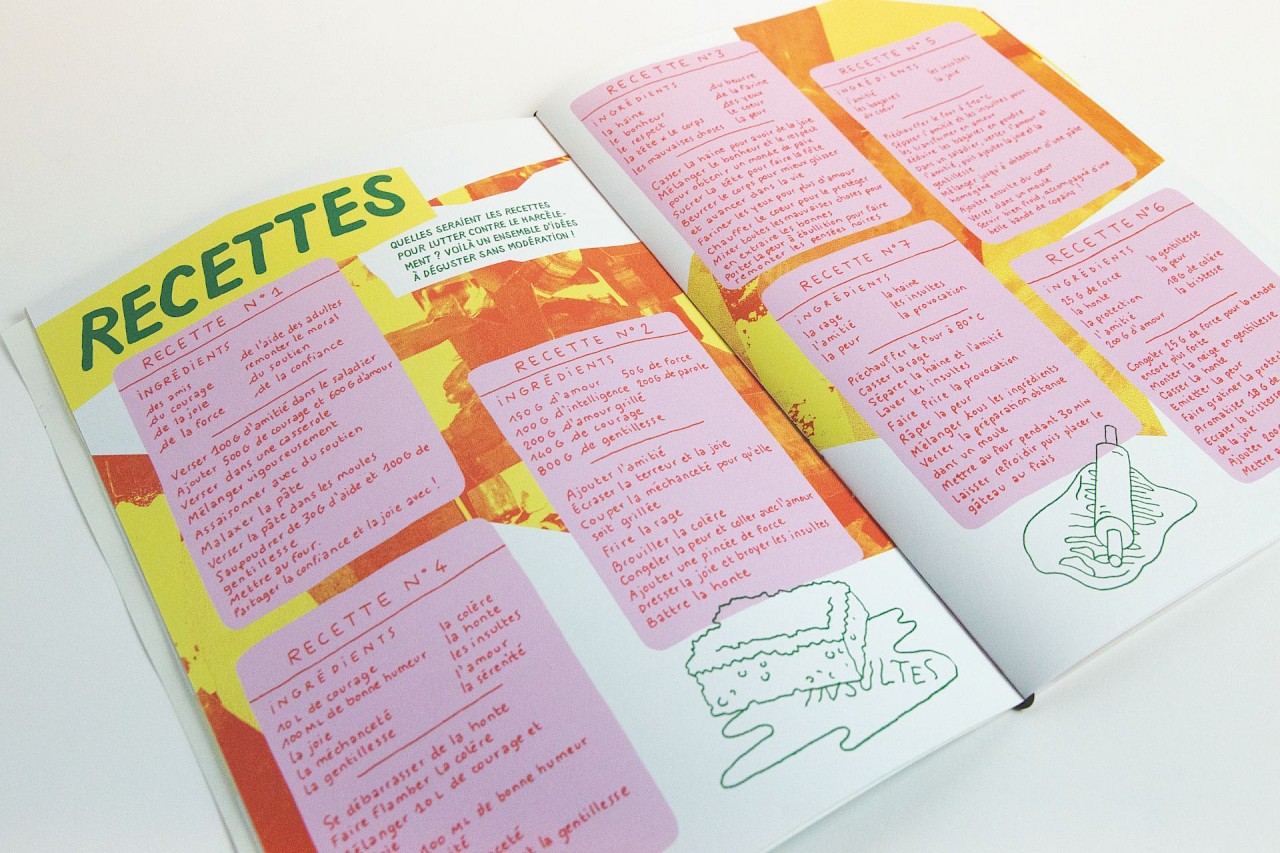 RECETTES
QUELLES SERAIENT LES RECETTES
POUR LUTTER CONTRE LE HARCÈLE-
MENT ? VOILÀ UN ENSEMBLE D'IDÉES
À DÉGUSTER SANS MODÉRATION !
RECETTE N°1
INGRÉDIENTS
des amis
du courage
de la joie
de la force
de l'aide des adultes
remonter le moral
du soutien
de la confiance
Verser 100G d'amitié dans le saladier
Ajouter 500G de courage et 600G d'amour
Verser dans une casserole
Mélanger vigoureusement
Assaisonner avec du soutien
Malaxer la pâte
Verser la pâte dans les moules
Saupoudrer de 30G d'aide et 100G de
gentillesse
Mettre au four.
Partager la confiance et la joie avec !
RECETTE N°2
INGRÉDIENTS
150G d'amour
100G d'intelligence
200G d'amour grillé
140G de courage
800G de gentillesse
50G de force
200G de parole
Ajouter l'amitié
Écraser la terreur et la joie
Couper la méchanceté pour qu'elle
soit grillée
Frire la rage
Brouiller la colère
Congeler la peur et coller avec l'amour
Ajouter une pincée de force
Dresser la joie et broyer les insultes
Battre la honte
RECETTE N°4
INGRÉDIENTS
10L de courage
100ML de bonne humeur
la joie
la méchanceté
la gentillesse
la colère
la honte
les insultes
l'amour
la sérénité
Se débarrasser de la honte
Faire flamber la colère
Mélanger 10L de courage et
100 ML de bonne humeur
la gentillesse
INSULTES
RECETTE N°3
INGRÉDIENTS
la haine
le bonheur
le respect
la tête le corps
les mauvaises choses
du beurre
de la farine
des yeux
le coeur
la peur
Casser la haine pour avoir de la joie
Mélanger le bonheur et le respect
pour obtenir un monde de paix
Sucrer la tête pour faire la fête
Beurrer le corps pour mieux glisser
et avancer dans la vie
Fariner les yeux pour plus d'amour
Chauffer le coeur pour le protéger
Mixer toutes les mauvaises choses pour
en extraire les bonnes
Porter la peur à ébullition pour faire
remonter les pensées noires
RECETTE N°5
INGRÉDIENTS
l'amitié
les bagarres
du cœur
les insultes
la joie
Préchauffer le four à 210°C
Râper l'amitié et les insultes pour
les transformer en amour
Réduire les bagarres en poudre
Dans un saladier, verser l'amour et
l'amitié, puis ajouter la joie et la
gentillesse
Mélanger jusqu'à obtention d'une pâte
homogène
Ajouter ensuite du cœur
Verser dans un moule
Servir bien frais, accompagné d'une
belle bande de copains
RECETTE N°7
INGRÉDIENTS
la rage
l'amitié
la peur
la haine
les insultes
la provocation
Préchauffer le four à 80°C
Casser la rage
Séparer la haine et l'amitié
Laver les insultes
Faire frire la provocation
Râper la peur
Mélanger tous les ingrédients
Verser la préparation obtenue
dans un moule
Mettre au four pendant 30 min
Laisser refroidir puis placer le
gâteau au frais
RECETTE N°6
INGRÉDIENTS
25G de force
la honte
la protection
l'amitié
200G d'amour
la gentillesse
la peur
18G de colère
la tristesse
Congeler 25G de force pour la rendre
encore plus forte
Monter la neige en gentillesse
Casser la honte
Émietter la peur
Faire gratiner la
Aromatiser 18G de
Écraser la tristesse
de la joie
Ajouter 200
Mettre